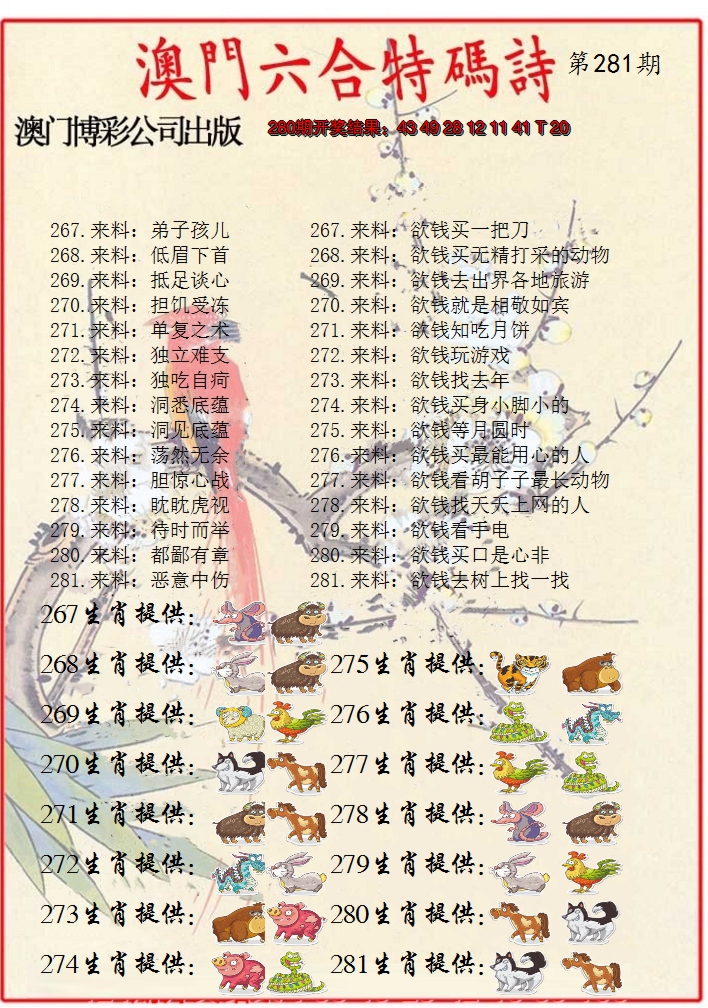 澳門六合特碼詩 第281期
澳门博彩公司出版 280期开奖结果：43 49 28 12 11 41 T 20
267.来料：弟子孩儿 267.来料：欲钱买一把刀
268.来料：低眉下首 268.来料：欲钱买无精打采的动物
269.来料：抵足谈心 269.来料：欲钱去出界各地旅游
270.来料：担饥受冻 270.来料：欲钱就是相敬如宾
271.来料：单复之术 271.来料：欲钱知吃月饼
272.来料：独立难支 272.来料：欲钱玩游戏
273.来料：独吃自疴 273.来料：欲钱找去年
274.来料：洞悉底蕴 274.来料：欲钱买身小脚小的
275.来料：洞见底蕴 275.来料：欲钱等月圆时
276.来料：荡然无余 276.来料：欲钱买最能用心的人
277.来料：胆惊心战 277.来料：欲钱看胡子子最长动物
278.来料：眈眈虎视 278.来料：欲钱找天天上网的人
279.来料：待时而举 279.来料：欲钱看手电
280.来料：都鄙有章 280.来料：欲钱买口是心非
281.来料：恶意中伤 281.来料：欲钱去树上找一找
267生肖提供：
268生肖提供： 275生肖提供：
269生肖提供： 276生肖提供：
270生肖提供： 277生肖提供：
271生肖提供： 278生肖提供：
272生肖提供： 279生肖提供：
273生肖提供： 280生肖提供：
274生肖提供： 281生肖提供：